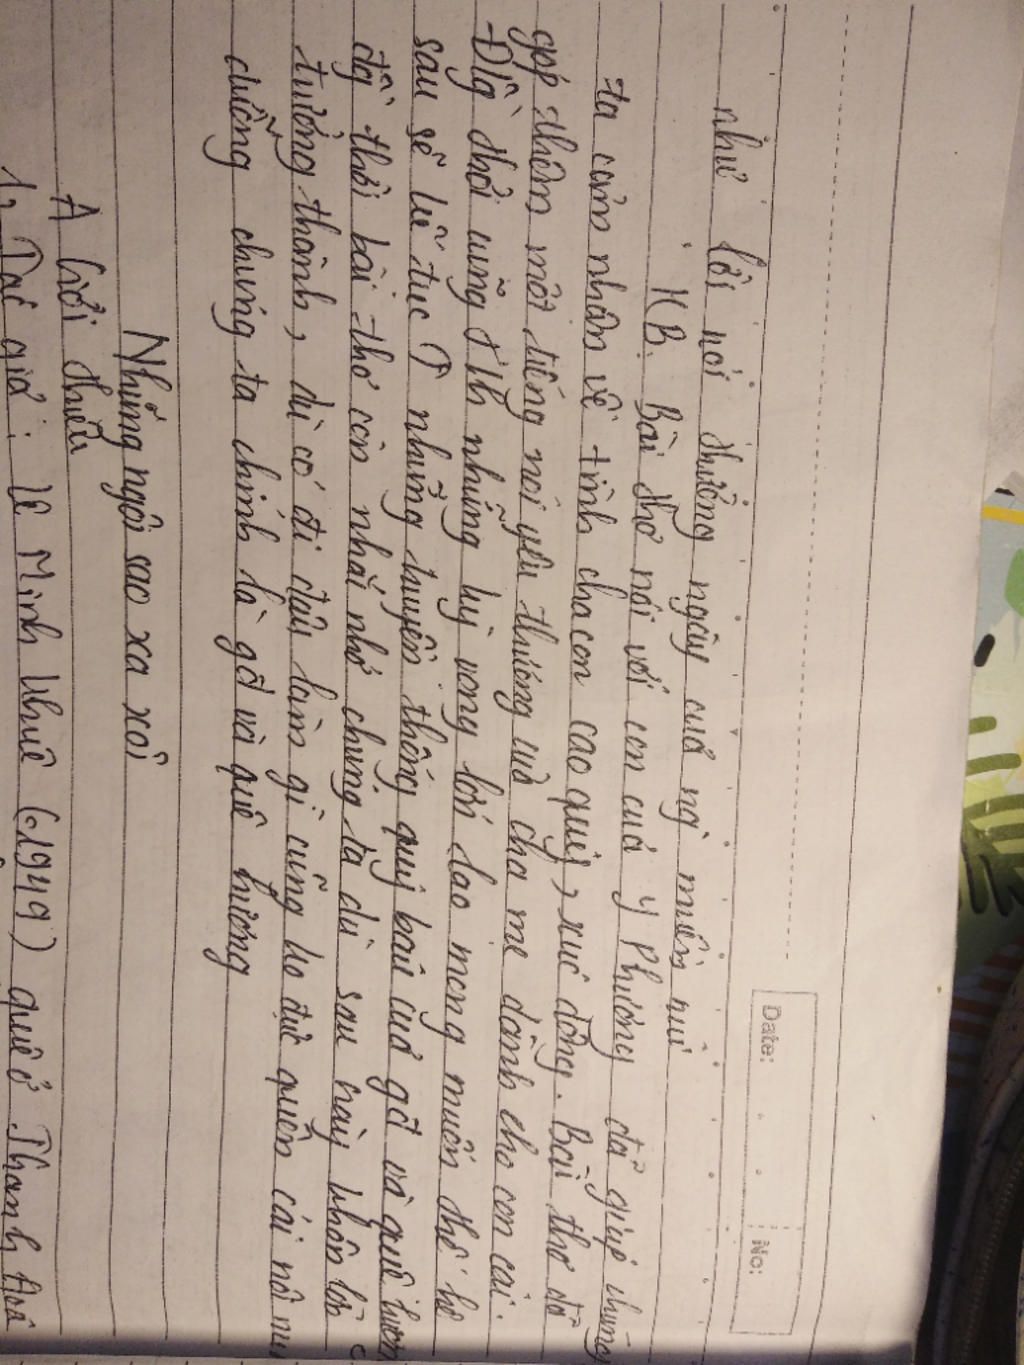 Date: No:
như lời nói thường ngày cuả ng` miền núi
KB. Bài thơ nói với con cuả Y Phương đã giúp chúng
ta cảm nhận về tình cha con cao quý, xúc động. Bài thơ đã
góp thêm một tiếng nói yêu thương cuả cha mẹ dành cho con cái.
thời cũng những hy vọng lớn lao mong muốn thế hệ
sau sẽ những truyền thống quý báu cuả gđ và quê hương
thời bài thơ còn nhắn nhở chúng ta dù sau này khôn lớn
trưởng thành, dù có đi đâu làm gì cũng ko đc quên cái nôi
dưỡng chúng ta chính là gđ và quê hương
Những ngôi sao xa xôi
A Giới thiệu
1, Tác giả: Lê Minh Khuê (1949) quê ở Thanh Hoá